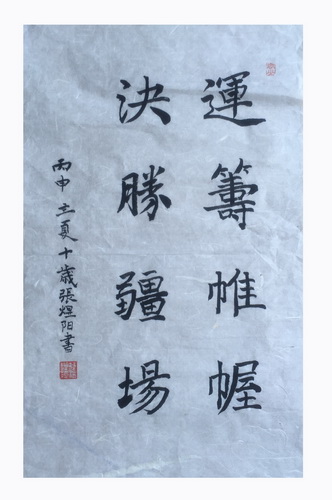 運籌帷幄
決勝疆場
丙申立夏十歲張煜阳書